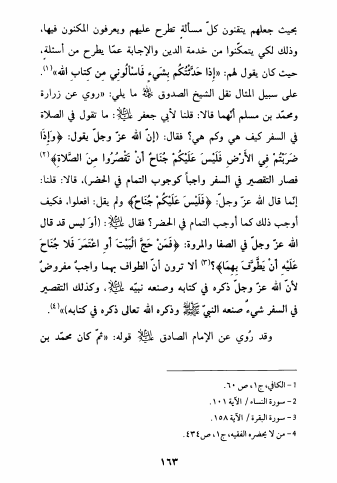 بحيث جعلهم يتقنون كلّ مسألة تطرح عليهم ويعرفون المكنون فيها،
وذلك لكي يتمكّنوا من خدمة الدين والإجابة عمّا يطرح من أسئلة،
حيث كان يقول لهم: «إذَا حَدَّثْتُكُم بِشَيءٍ فَاسأَلُونِي مِن كِتابِ الله»(١).
على سبيل المثال نقل الشيخ الصدوق ﷺ ما يلي: «روي عن زرارة
ومحمّد بن مسلم أنّهما قالا: قلنا لأبي جعفر ﷺ: ما تقول في الصلاة
في السفر كيف هي وكم هي؟ فقال: (إنّ الله عزّ وجلّ يقول: ﴿وَإِذَا
ضَرَبْتُمْ فِي الأَرْضِ فَلَيْسَ عَلَيْكُمْ جُنَاحٌ أَنْ تَقْصُرُوا مِنَ الصَّلاَةِ﴾(٢)
فصار التقصير في السفر واجباً كوجوب التمام في الحضر)، قالا: قلنا:
إنّما قال الله عزّ وجلّ: ﴿فَلَيْسَ عَلَيْكُمْ جُنَاحٌ﴾ ولم يقل: افعلوا، فكيف
أوجب ذلك كما أوجب التمام في الحضر؟ فقال ﷺ: (أو ليس قد قال
الله عزّ وجلّ في الصفا والمروة: ﴿فَمَنْ حَجَّ الْبَيْتَ أَوِ اعْتَمَرَ فَلاَ جُنَاحَ
عَلَيْهِ أَنْ يَطَّوَّفَ بِهِمَا﴾(٣)؟ ألا ترون أنّ الطواف بهما واجبٌ مفروضٌ
لأنّ الله عزّ وجلّ ذكره في كتابه وصنعه نبيّه ﷺ، وكذلك التقصير
في السفر شيءٌ صنعه النبيّ ﷺ وذكره الله تعالى ذكره في كتابه)»(٤).
وقد رُوي عن الإمام الصادق ﷺ قوله: «ثمّ كان محمّد بن
١- الكافي، ج١، ص ٦٠.
٢- سورة النساء / الآية ١٠١.
٣- سورة البقرة / الآية ١٥٨.
٤- من لا يحضره الفقيه، ج١، ص ٤٣٤.
١٦٣